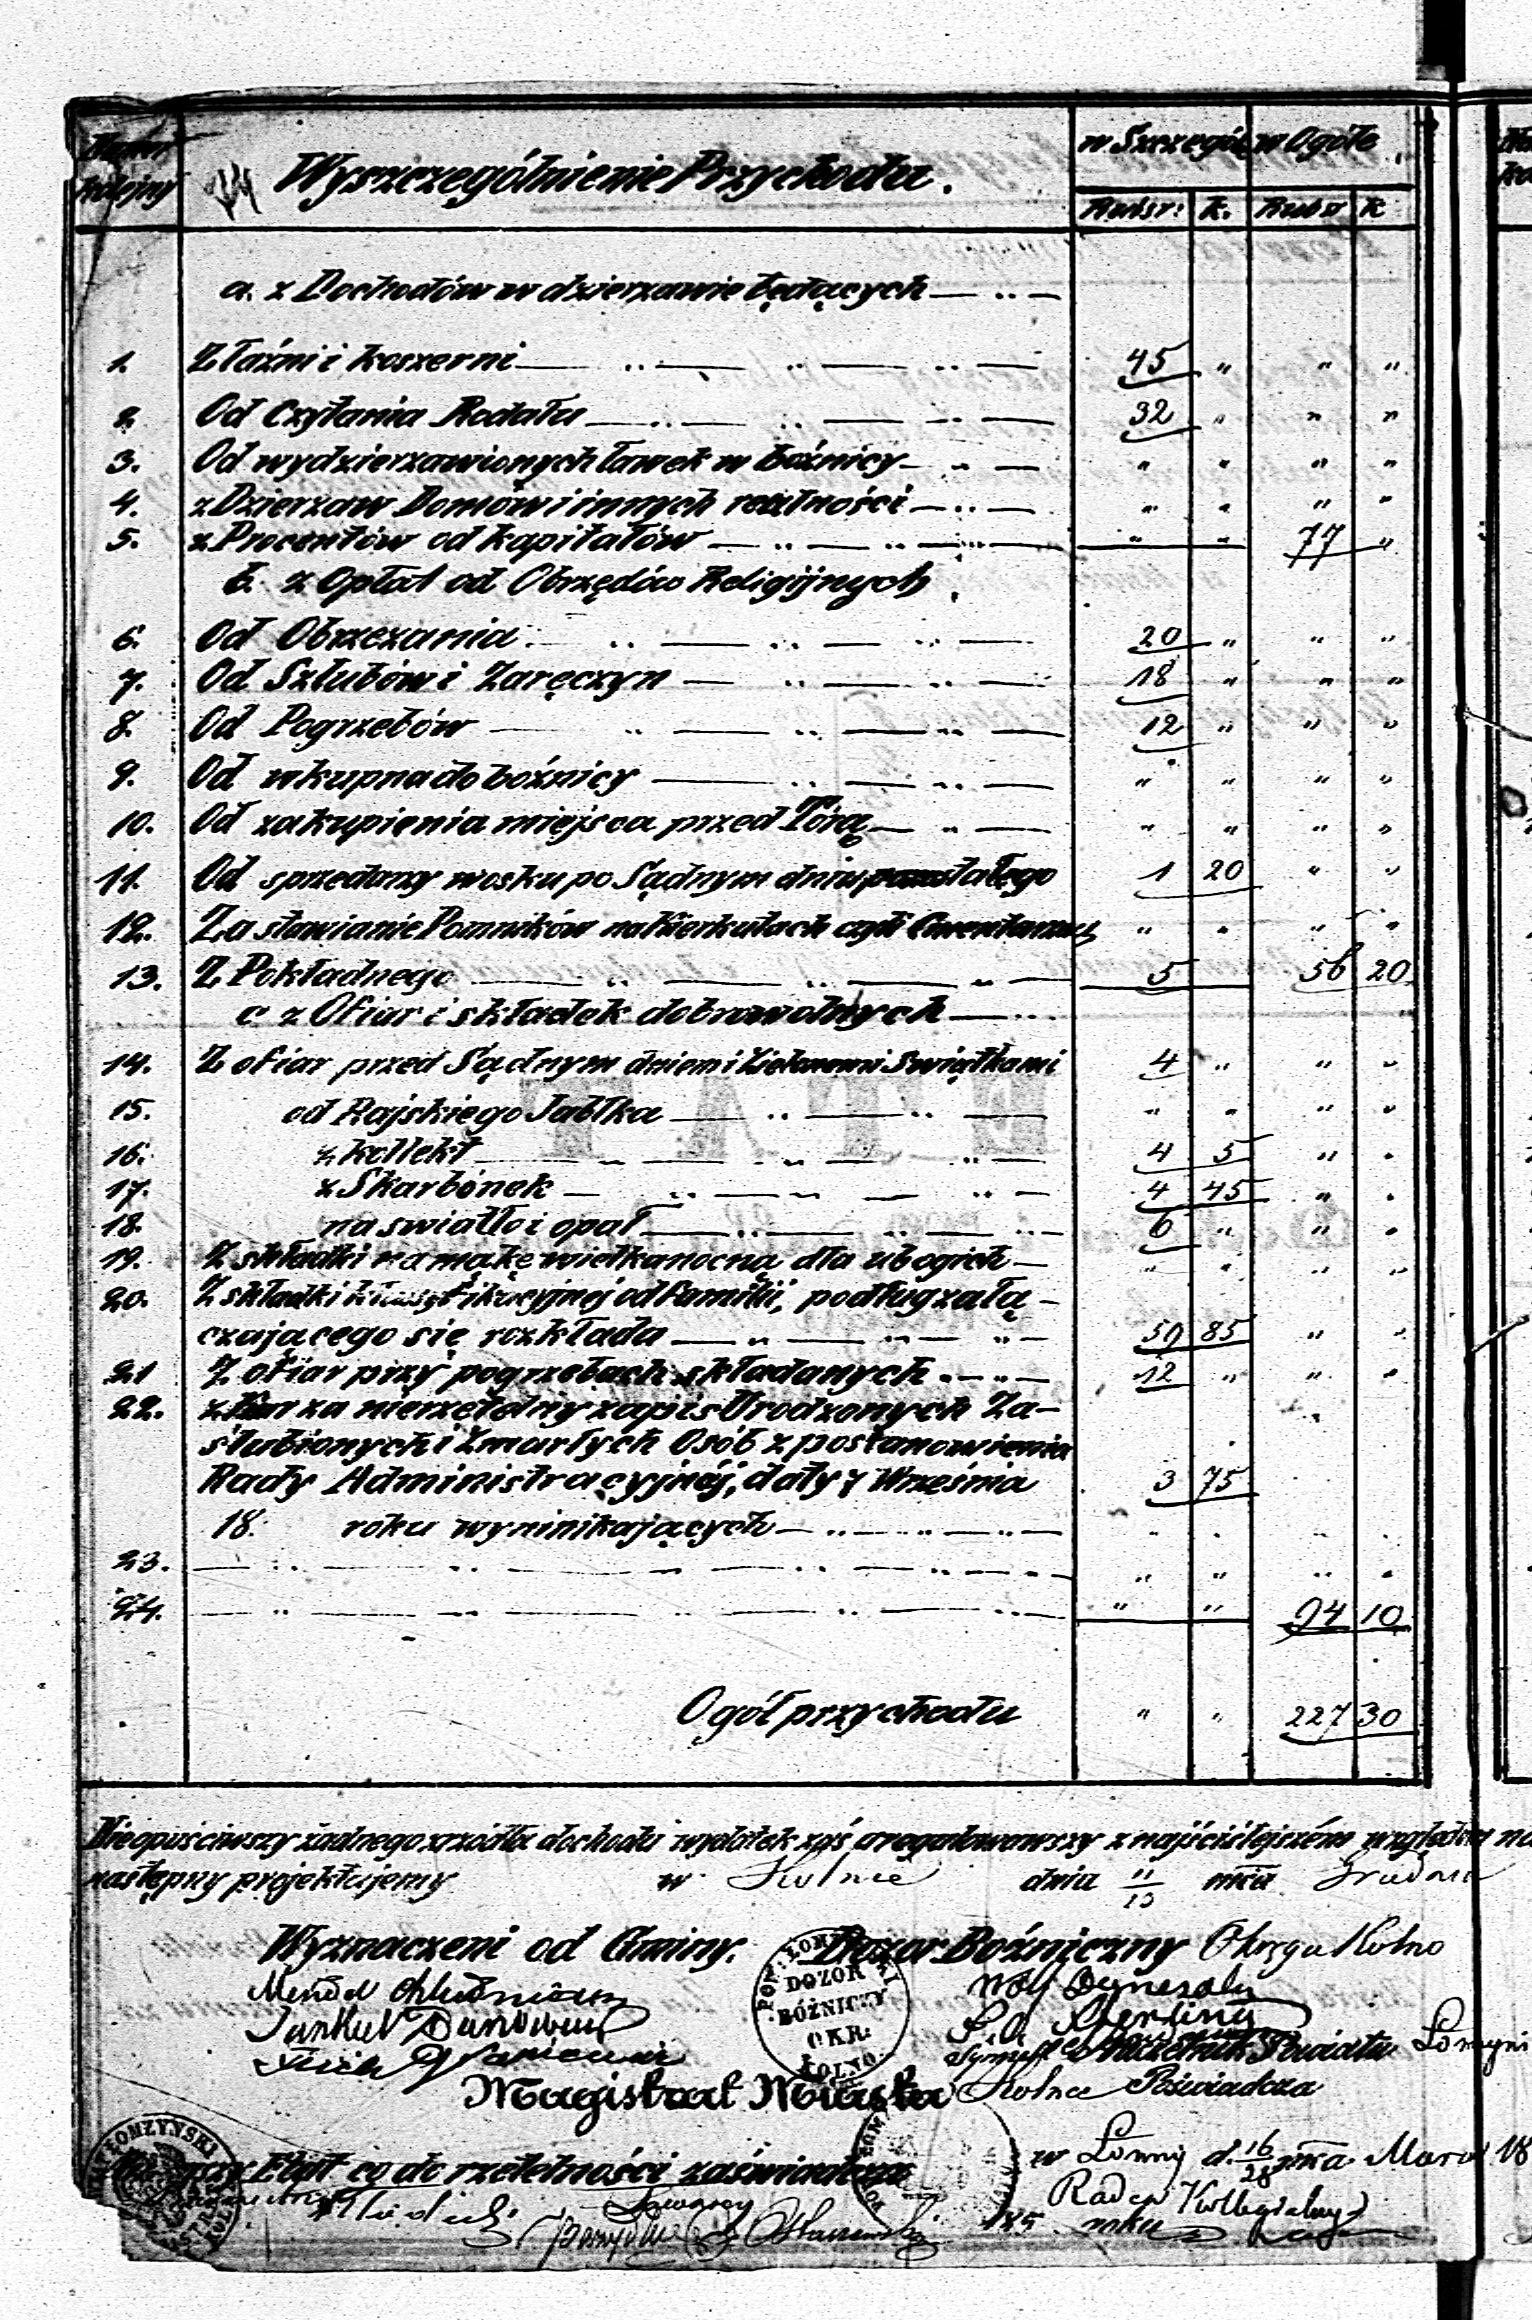 Numer kolejny Wyszczególnienie Przychodu. w Szczególe w Ogóle
Rubsr: k. Rubsr k
a. z Dochodów w dzierzawie będących
1. Z łaźni i koszerni 45 " " "
2 Od Czytania Rodału 32 " " "
3. Od wydzierzawionych ławek w bóżnicy " " " "
4. z Dzierzaw Domów i innych realności " " " "
5. z Procentów od kapitałów " " 77 "
b. z Opłat od Obrzędów Religijnych
6. Od Obrzezania 20 " " "
7. Od Szlubów i Zaręczyn 18 " " "
8. Od Pogrzebów 12 " " "
9. Od wkupna do bożnicy " " " "
10. Od zakupienia miejsca przed Torą " " " "
11. Od sprzedarzy wosku po Sądnym dniu pozostałego 1 20 " "
12. Za stawianie Pomników na Kierkutach czyli Cmentarzu " " " "
13. Z Pokładnego 5 56 20
c z Ofiar i składek dobrowolnych
14. Z ofiar przed Sądnym dniem i Zielonemi Swiątkami 4 " " "
15. od Rajskiego Jabłka " " " "
16. z kollekt 4 5 " "
17. z Skarbónek 4 45 " "
18. na swiatło i opał 6 " " "
19. Z składki na mąkę wielkanocną dla ubogich " " " "
20. Z składki klassyfikacyjnéj od familii, podług załą-
czającego się rozkładu 59 85 " "
21 Z ofiar przy pogrzebach składanych 12 " " "
22. z Kar za nierzetelny zapis Urodzonych Za-
slubionych i Zmarłych Osób z postanowienia
Rady Administracyjnéj, daty 7 Września 3 75
18. roku wyninikających
23. " " " "
24. " " 94 10
Ogół przychodu " " 227 30
Nieopuściwszy żadnego zrzódła dochodu wydatek zaś uregulowawszy z najściślejszém względem na
następny projektujemy w Kolnie dnia 11/13 mca Grudnia
Wyznaczeni od Gminy. Dozor Bóżniczny Okręgu Kolno
POW: ŁOMŻYŃSKI DOZOR BÓŻNICZY OKR: KOLNO
Naczelnik Powiatu Łomżyń
Magistrat Miasta Kolna Poświadcza
Etat co do rzetelności zaświadcza
w Łomży d. 16/28 mca Marca 18
Radca Kollegialny
185 roku